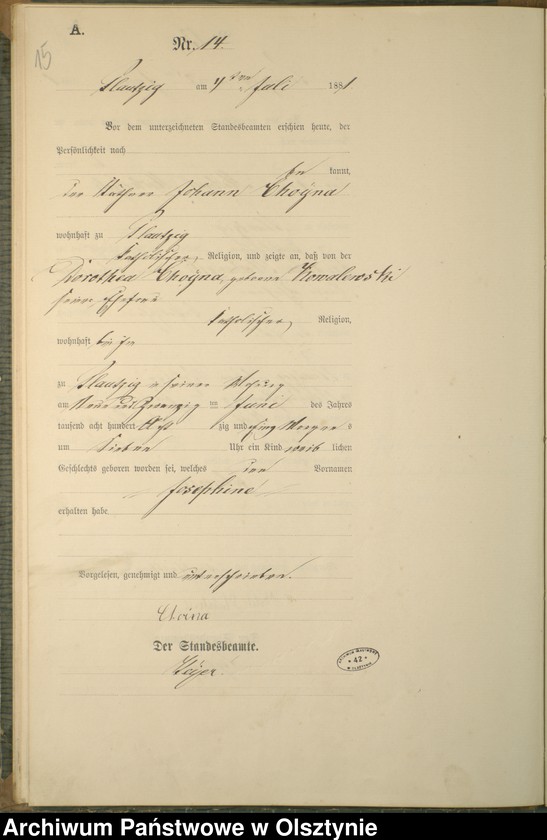 A.
15
Nr. 14
Plautzig am 4ten Juli 1881.
Vor dem unterzeneichneten Standesbeamten erschien heute, der
Persönlichkeit nach
be kannt,
der Käthner Johann Choÿna
wohnhaft zu Plautzig
katholischer Religion, und zeigte an, daß von der
Dorothea Choÿna, geborene Kowalewski
seiner Ehefrau
katholischer Religion,
wohnhaft bei ihm
zu Plautzig in seiner Wohnung
am Neun und Zwanzig ten Juni des Jahres
tausend acht hundert acht zig und eins Morgens
um sieben Uhr ein Kind weib lichen
Geschlechts geboren worden sei, welches den Vornamen
Josephine
erhalten habe.
Vorgelesen, genehmigt und unterschrieben.
Choina
Der Standesbeamte.
42
Archiwum Państwowe w Olsztynie